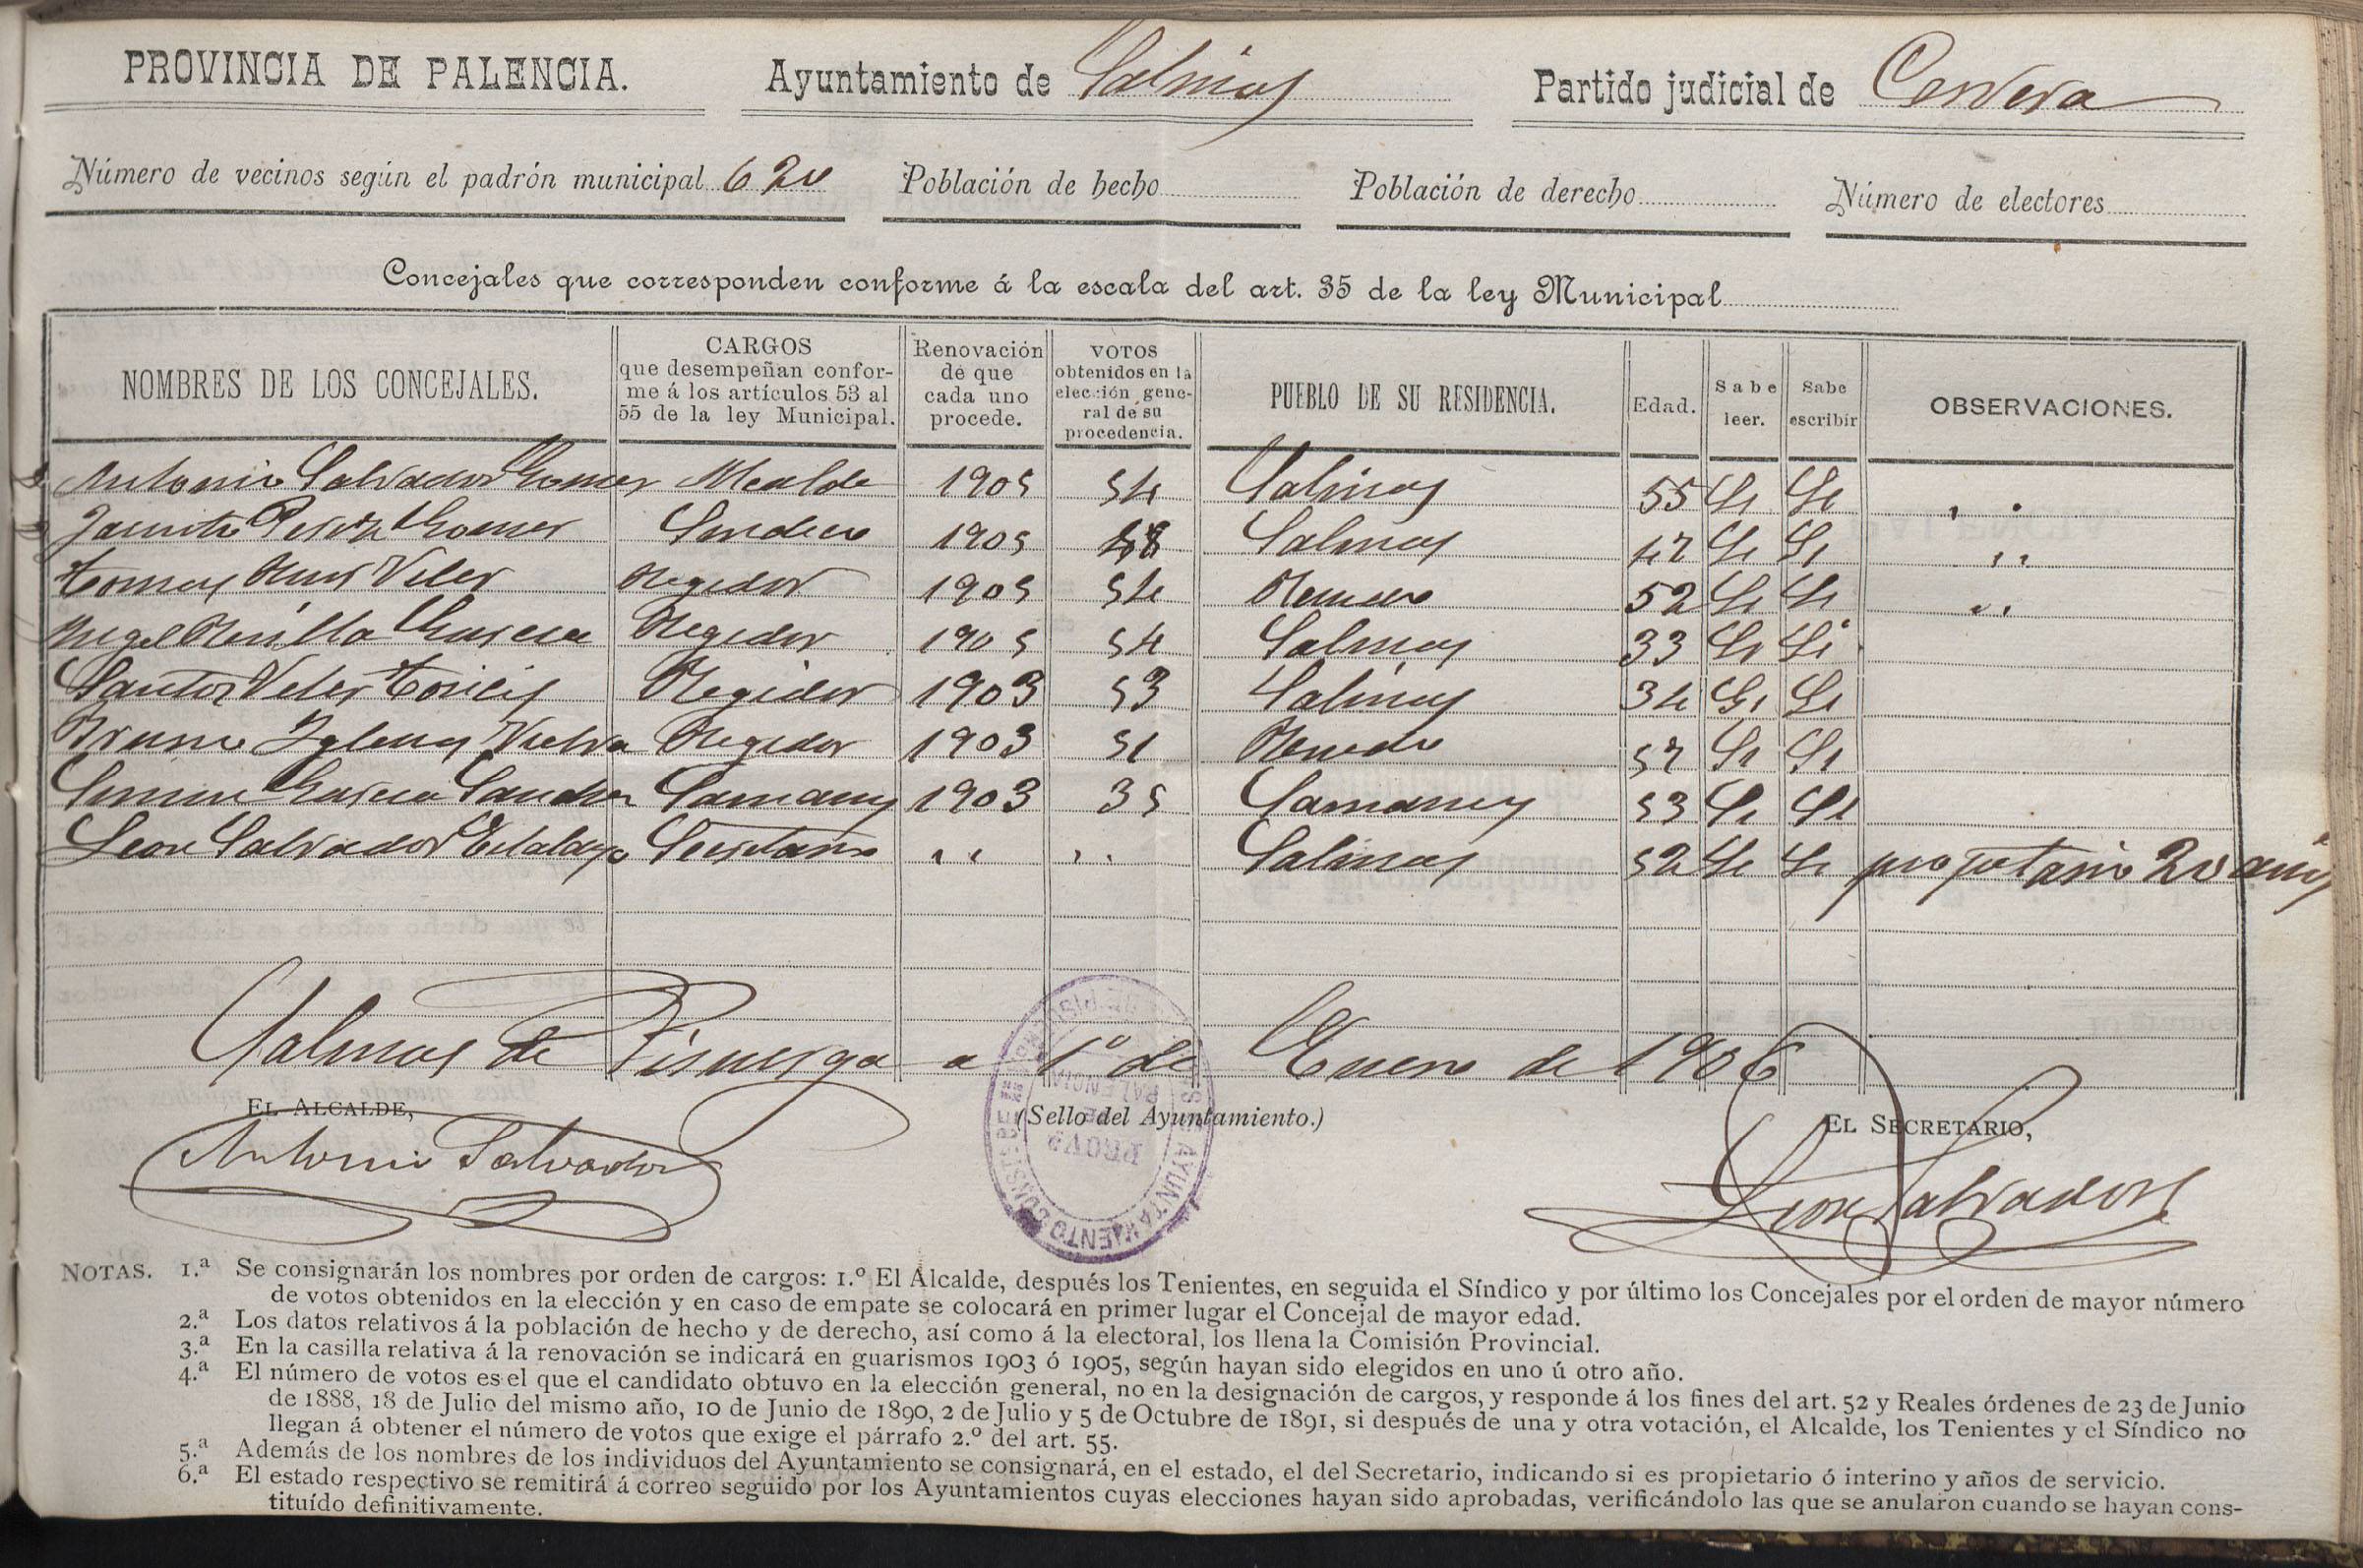 PROVINCIA DE PALENCIA. Ayuntamiento de Salinas Partido judicial de Cervera
Número de vecinos según el padrón municipal 620 Población de hecho Población de derecho Número de electores
Concejales que corresponden conforme á la escala del art. 35 de la ley Municipal
NOMBRES DE LOS CONCEJALES.
CARGOS
que desempeñan confor-
me á los artículos 53 al
55 de la ley Municipal.
Renovación
de que
cada uno
procede.
VOTOS
obtenidos en la
elección gene-
ral de su
procedencia.
PUEBLO DE SU RESIDENCIA.
Edad.
Sabe
leer.
Sabe
escribir
OBSERVACIONES.
Antonio Salvador Gomez Alcalde 1905 54 Salinas 55 Si Si
Jacinto Gomez Sindico 1905 Salinas 47 Si Si
Tomas Ruiz Velez Regidor 1905 54 52 Si Si
Angel Revilla Garcia Regidor 1905 54 Salinas 33 Si Si
Santos Velez Regidor 1903 53 Salinas 34 Si Si
Bruno Iglesias Vielva Regidor 1903 51 Renedo 57 Si Si
Garcia 1903 35 53 Si Si
Leon Salvador Secretario Salinas 52 Si Si propietario 20 años
Salinas de Pisuerga a 1º de Enero de 1906
EL ALCALDE, (Sello del Ayuntamiento.) EL SECRETARIO,
Antonio Salvador Leon Salvador
AYUNTAMIENTO CONST. DE
PROVª
DE
PALENCIA
NOTAS. 1.ª Se consignarán los nombres por orden de cargos: 1.º El Alcalde, después los Tenientes, en seguida el Síndico y por último los Concejales por el orden de mayor número
de votos obtenidos en la elección y en caso de empate se colocará en primer lugar el Concejal de mayor edad.
2.ª Los datos relativos á la población de hecho y de derecho, así como á la electoral, los llena la Comisión Provincial.
3.ª En la casilla relativa á la renovación se indicará en guarismos 1903 ó 1905, según hayan sido elegidos en uno ú otro año.
4.ª El número de votos es el que el candidato obtuvo en la elección general, no en la designación de cargos, y responde á los fines del art. 52 y Reales órdenes de 23 de Junio
de 1888, 18 de Julio del mismo año, 10 de Junio de 1890, 2 de Julio y 5 de Octubre de 1891, si después de una y otra votación, el Alcalde, los Tenientes y el Síndico no
llegan á obtener el número de votos que exige el párrafo 2.º del art. 55.
5.ª Además de los nombres de los individuos del Ayuntamiento se consignará, en el estado, el del Secretario, indicando si es propietario ó interino y años de servicio.
6.ª El estado respectivo se remitirá á correo seguido por los Ayuntamientos cuyas elecciones hayan sido aprobadas, verificándolo las que se anularon cuando se hayan cons-
tituído definitivamente.